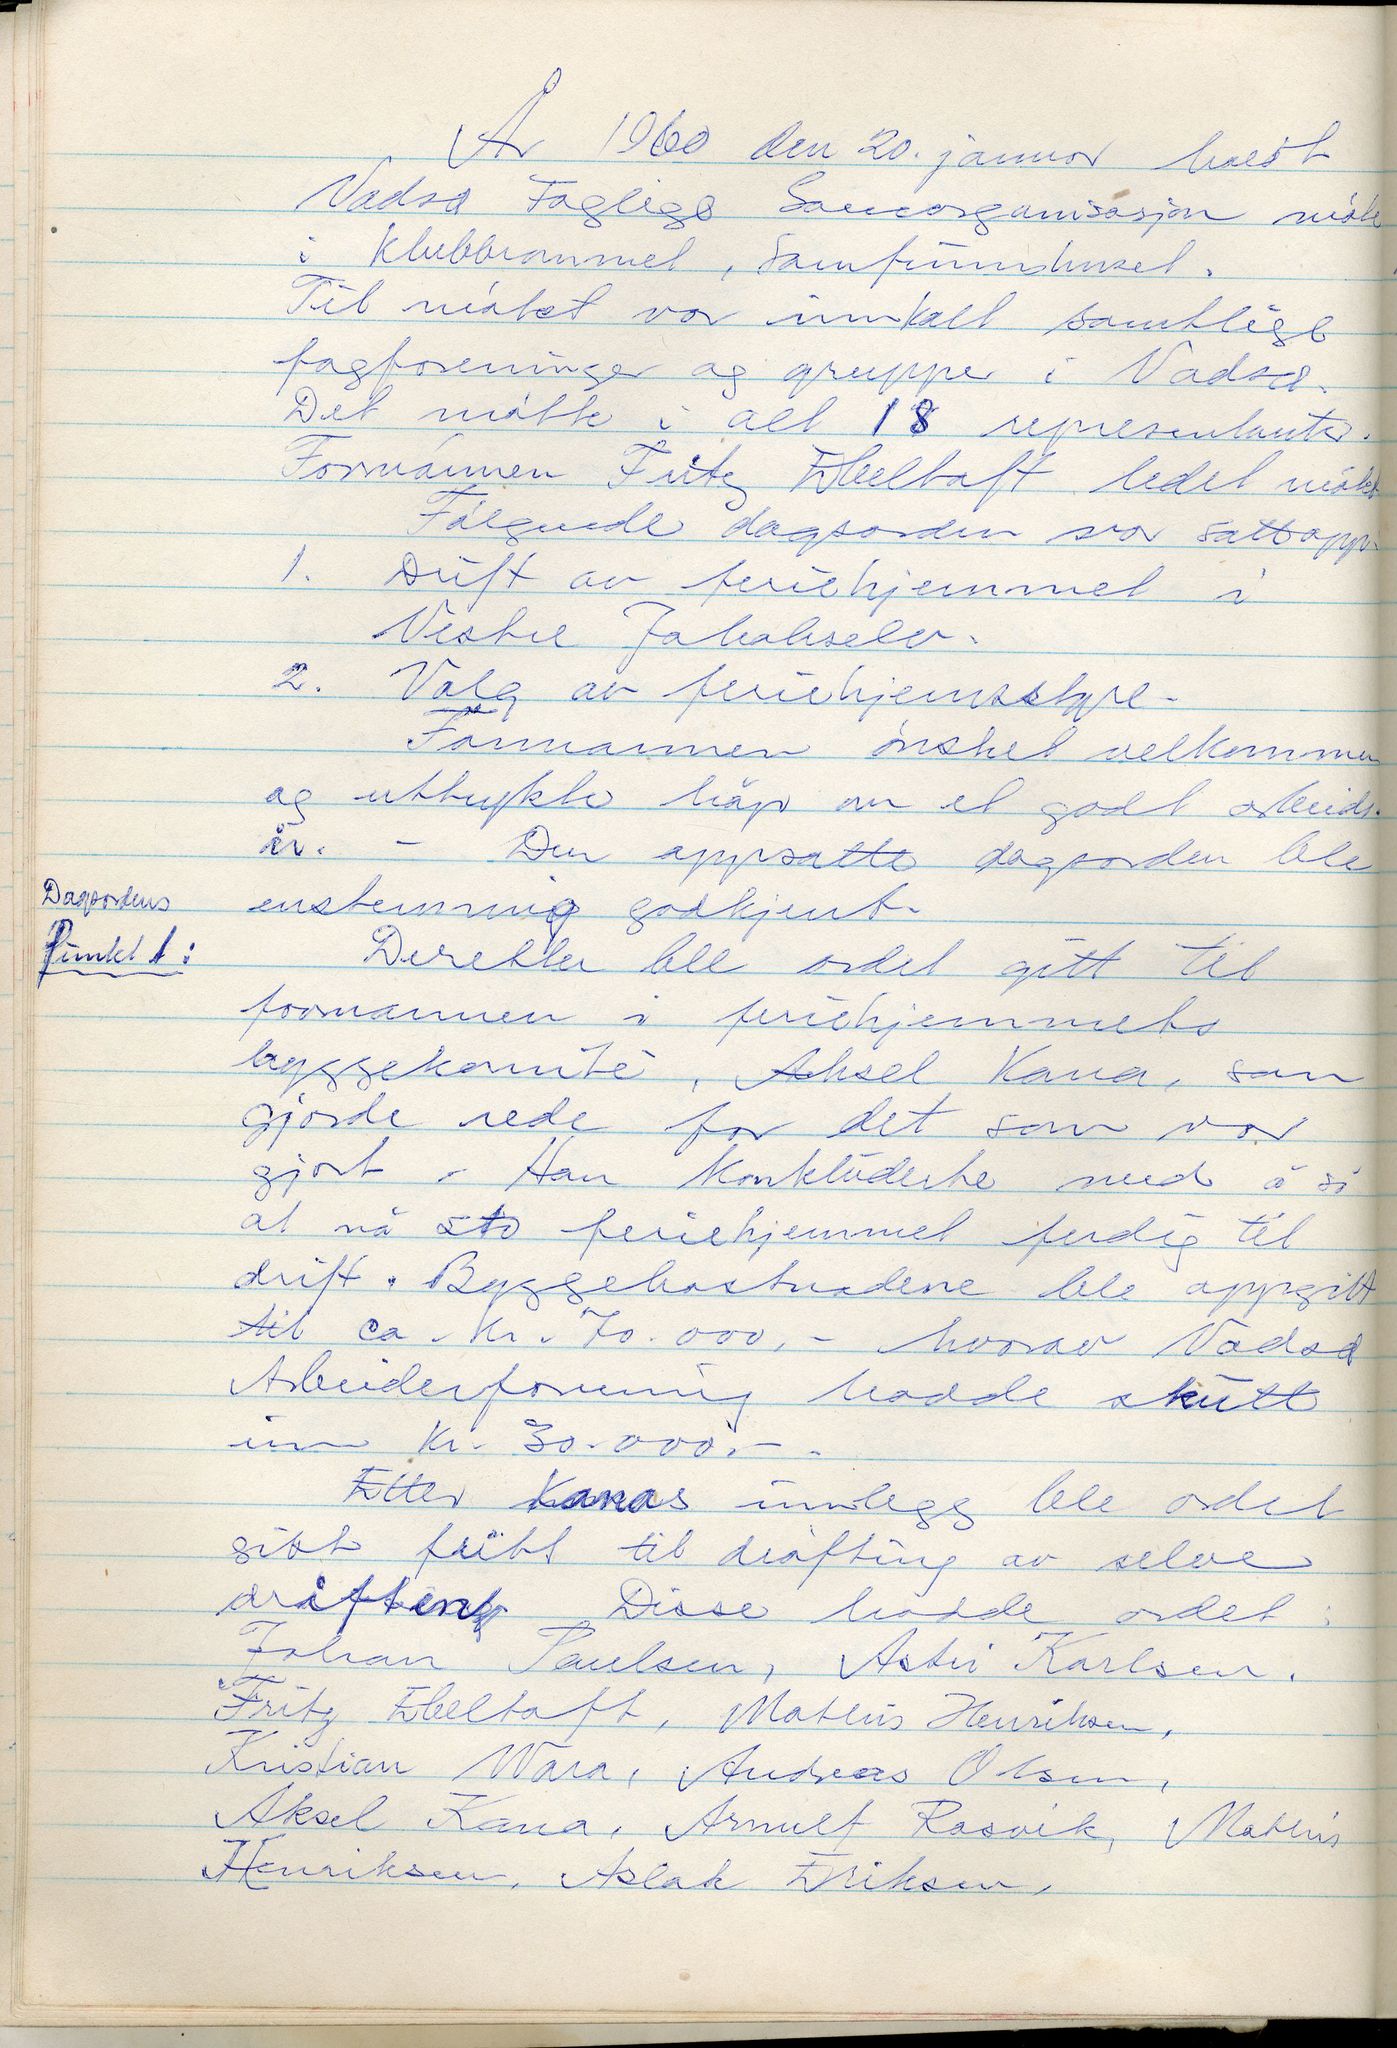 År 1960 den 20. januar holdt
Vadsø Faglige Samorganisasjon møte
i klubbrommet, Samfunnshuset.
Til møtet var innkalt samtlige
fagforeninger og grupper i Vadsø.
Det møtte i alt 18 representanter.
Formannen Fritz Ebeltoft ledet møtet
Følgende dagsorden var satt opp.
1. Drift av feriehjemmet i
Vestre Jakobselv.
2. Valg av feriehjemsstyre.
Formannen ønsket velkommen
og uttrykte håp om et godt arbeids-
år. - Den oppsatte dagsorden ble
enstemmig godkjent.
Dagsordens
Punkt 1:
Deretter ble ordet gitt til
formannen i feriehjemmets
byggekomité, Aksel Kana, som
gjorde rede for det som var
gjort. Han konkluderte med å si
at nå sto feriehjemmet ferdig til
drift. Byggekostnadene ble oppgitt
til ca. kr. 70.000,- hvorav Vadsø
Arbeiderforening hadde skutt
inn kr. 30.000.-.
Etter Kanas innlegg ble ordet
gitt fritt til drøfting av selve
driften. Disse hadde ordet:
Johan Paulsen, Karlsen.
Fritz Ebeltoft, Mathis Henriksen,
Kristian Wara, Andreas Olsen,
Aksel Kana, Arnulf Rasvik, Mathis
Henriksen, Aslak Eriksen,